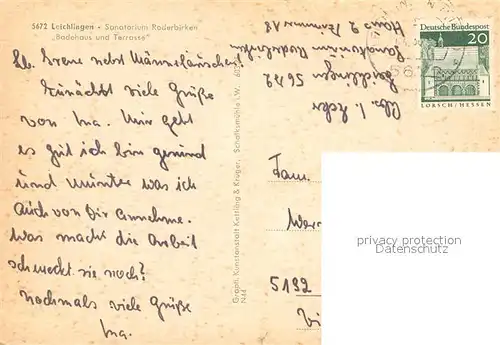 5672 Leichlingen - Sanatorium Roderbirken
„Badehaus und Terrasse"
Lb. Irene nebst Männeläuschen!
Zunächst viele Grüße
von Ina. Mir geht
es gut ich bin gesund
und munter was ich
auch von Dir annehme.
Was macht die Arbeit
schmeckt sie noch?
Nochmals viele Grüße
Ina.
Graph. Kunstanstalt Kettling & Krüger, Schalksmühle i. W.
N44
Abs. I.
Leichlingen 5672
Sanatorium Roderbirken
Haus 2 Zimmer 18
Deutsche Bundespost
20
LORSCH/HESSEN
Fam.
5192
privacy protection
Datenschutz